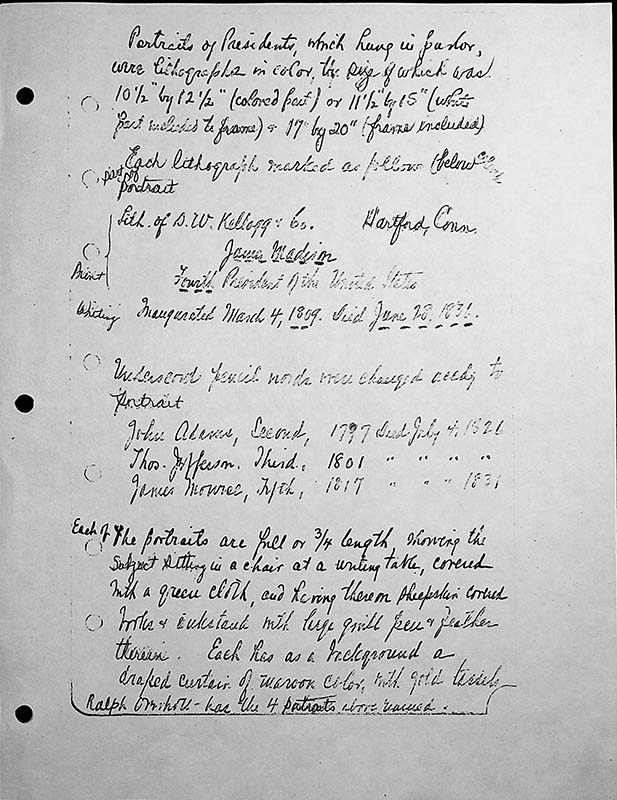 Portraits of Presidents, which hung in parlor,
were lithographs in color, the size of which was
10½" by 12½" (colored part) or 11½" by 15" (white
part included to frame) & 17" by 20" (frame included)
Each lithograph marked as follows (below
part of
portrait
Lith. of D. W. Kellogg & Co. Hartford, Conn.
James Madison
Print
Fourth President of the United States
Writing Inaugurated March 4, 1809. Died June 28, 1836.
Underscored pencil words were changed accdg to
portrait
John Adams, Second, 1797 Died July 4, 1826
Thos. Jefferson. Third, 1801 " " " "
James Monroe, Fifth, 1817 " " " 1831
Each of the portraits are full or ¾ length, showing the
subject sitting in a chair at a writing table, covered
with a green cloth, and having thereon sheepskin covered
books & inkstand with large quill pen & feather
therein. Each has as a background a
draped curtain of maroon color, with gold tassels
Ralph - has the 4 portraits above named.